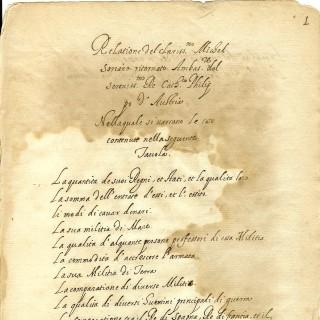 1
Relatione del clariss.mo Michel
soriano ritornato Ambas.re dal
sereniss.mo Re Cath.co Philip
po d'Austria
Nella quale si narrano le cose
contenute nella seguente
Tavola.
La quantità de suoi Regni, et stati, et la qualità loro
La somma dell'entrate d'essi, et l'estito
Li modi di cavar denari.
La sua militia di Mare
La qualità d'alquante persone professori di essa Militia
La commodità d'accrescere l'armata
La sua Militia di Terra
La comparatione di diverse Militie
La qualità di diversi Huomini principali di guerra
La comparatione tra il Re di Spagna, Re di francia, et il